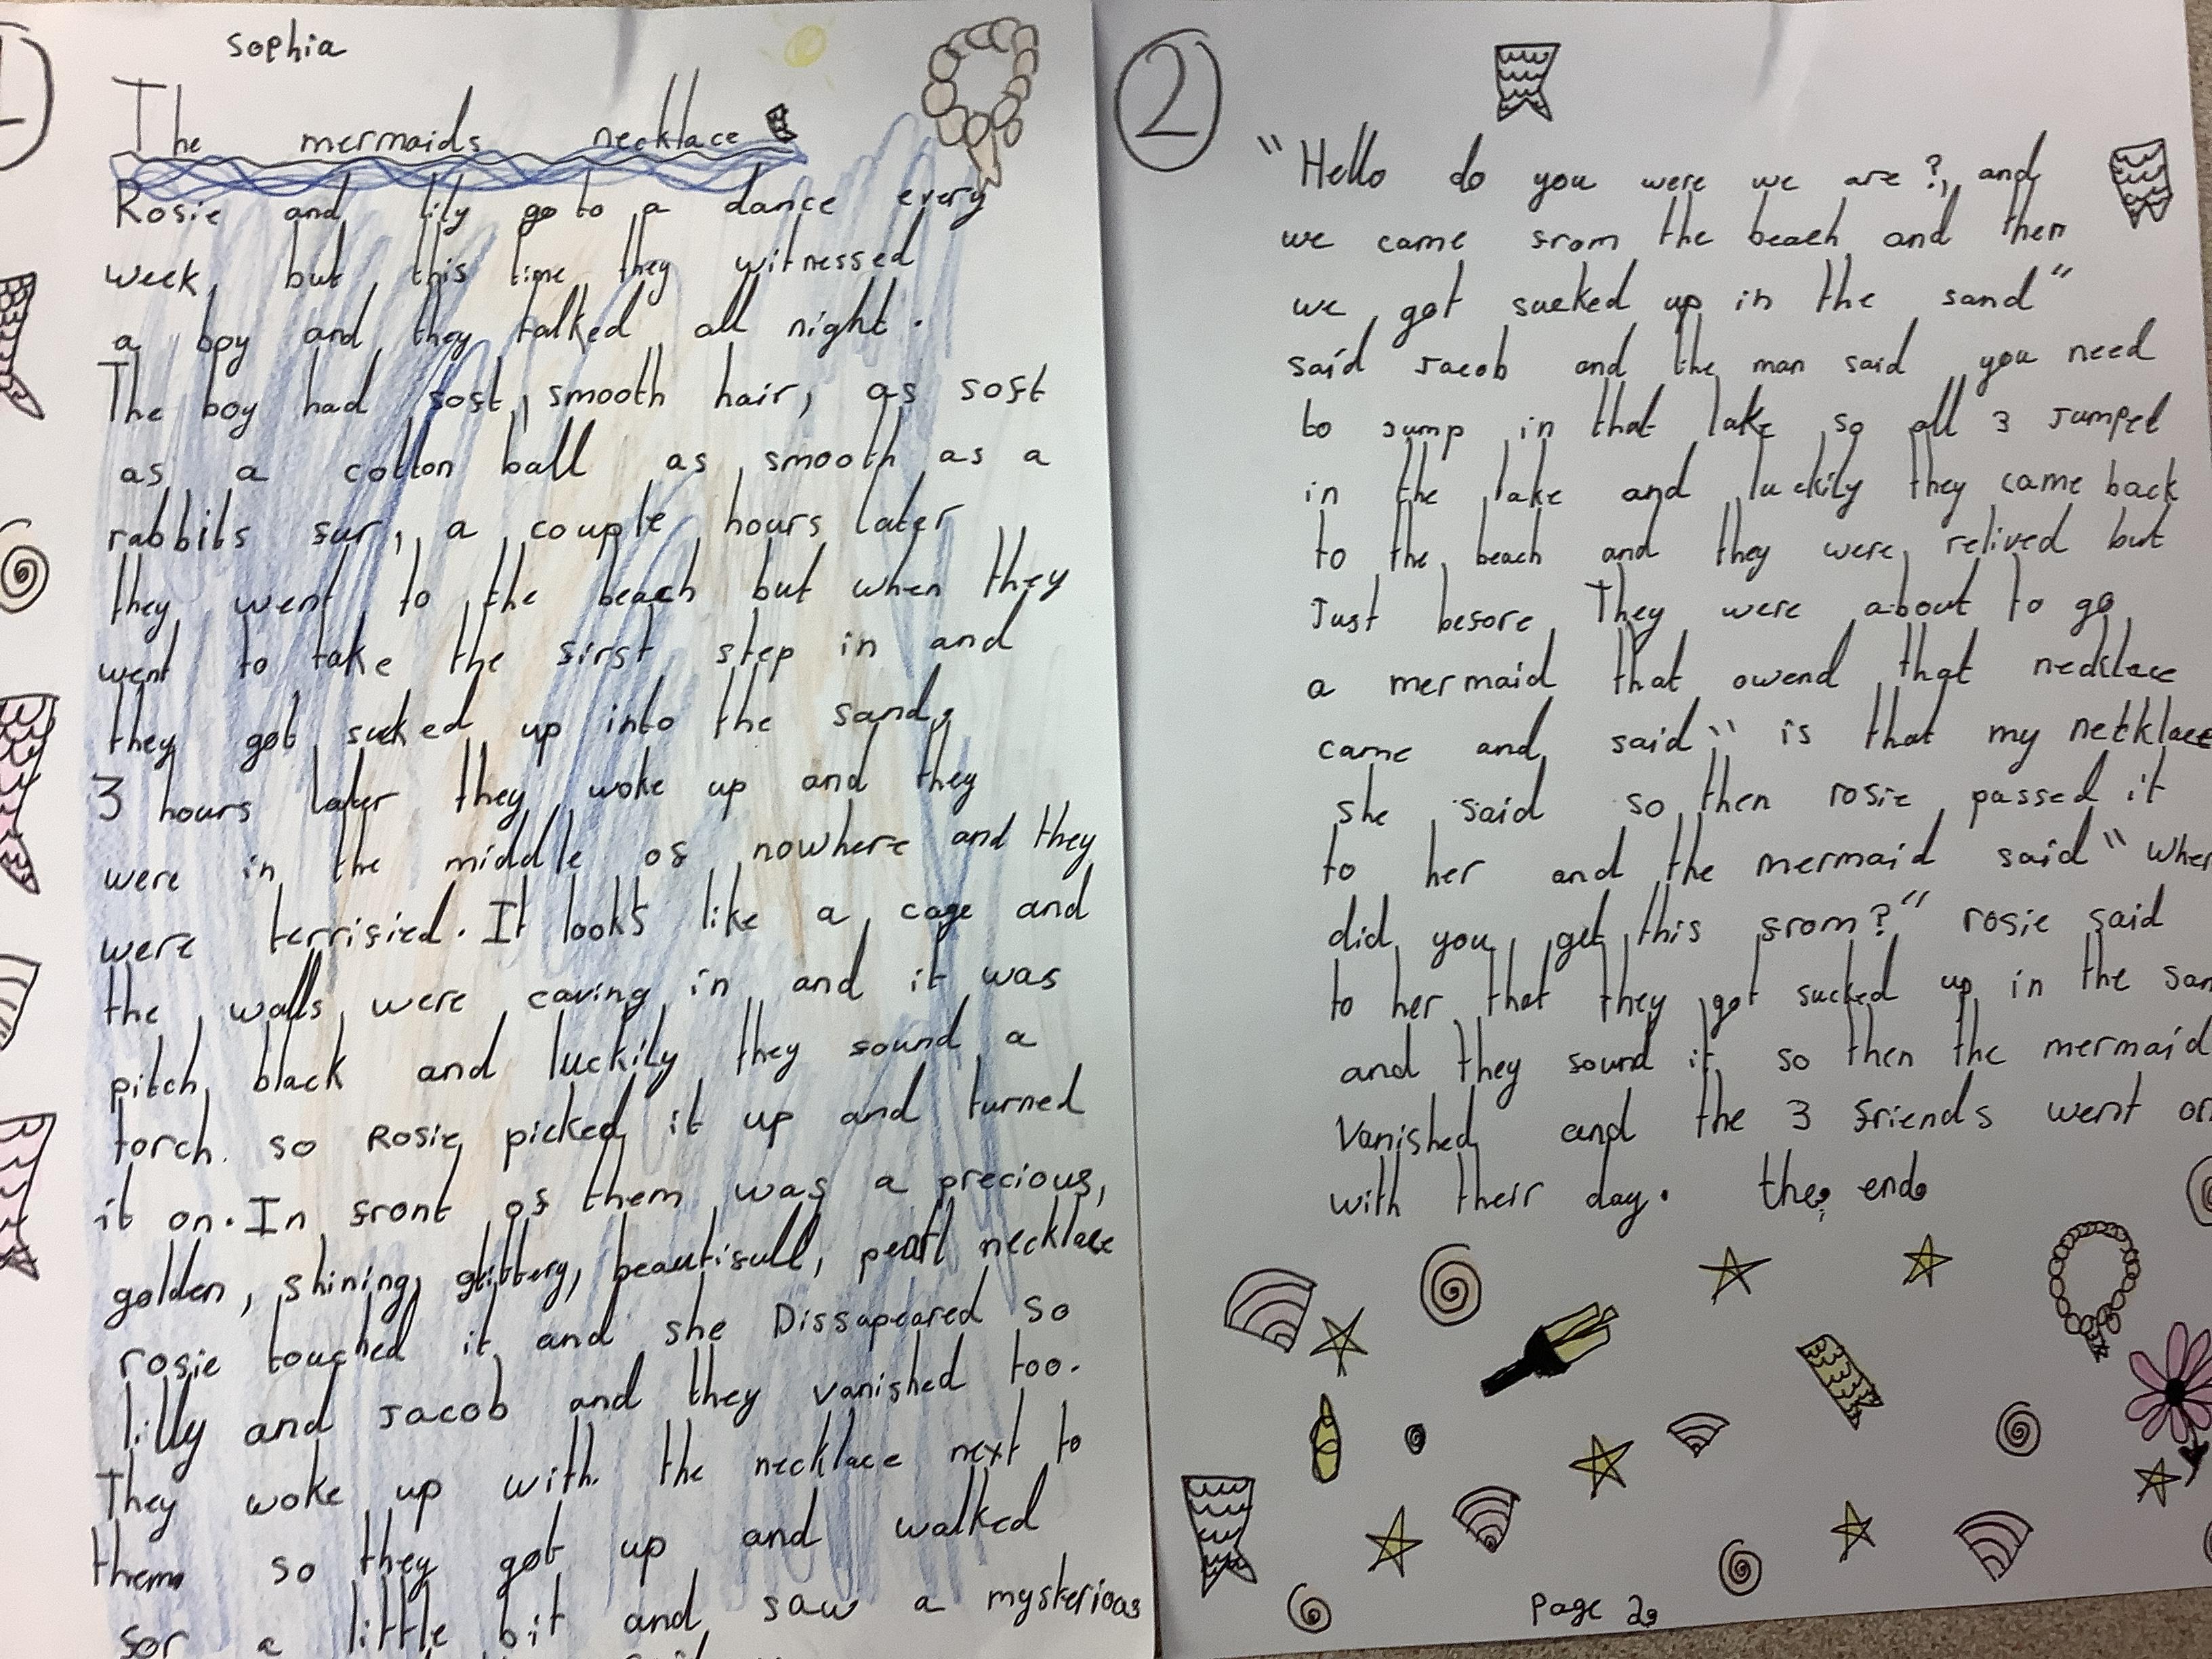 1
Sophia
The mermaids necklace
Rosie and lily go to a dance every
week but this time they witnessed
a boy and they talked all night.
The boy had soft, smooth hair, as soft
as a cotton ball as smooth as a
rabbits fur, a couple hours later
they went to the beach but when they
went to take the first step in and
they got sucked up into the sand.
3 hours later they woke up and they
were in the middle of nowhere and they
were terrified. It looks like a cage and
the walls were caving in and it was
pitch black and luckily they found a
torch. so Rosie picked it up and turned
it on. In front of them was a precious,
golden, shining, glittery, beautifull, pearl necklace
rosie touched it and she Dissapeared so
lilly and Jacob and they vanished too.
They woke up with the necklace next to
them so they got up and walked
for a little bit and saw a mysterious
2
"Hello do you were we are?, and
we came from the beach and then
we got sucked up in the sand"
said Jacob and the man said you need
to Jump in that lake so all 3 Jumped
in the lake and luckily they came back
to the beach and they were relived but
Just before They were about to go
a mermaid that owend that necklace
came and said" is that my necklace
she said so then rosie passed it
to her and the mermaid said "Wher
did you get this from?" rosie said
to her that they got sucked up in the san
and they found it so then the mermaid
Vanished and the 3 friends went on
with their day. the end
page 2